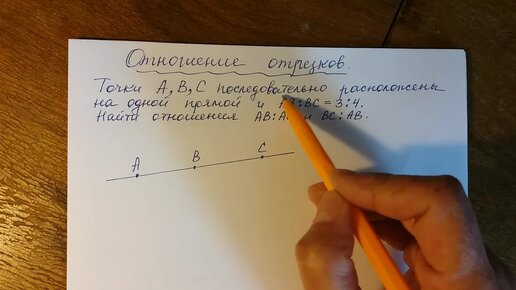 Отношение отрезков.
Точки А, В, С последовательно расположены
на одной прямой и АВ:ВС = 3:4.
Найти отношения АВ:А и ВС:АВ.
А В С